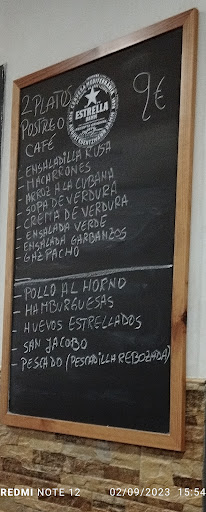 2 PLATOS
POSTRE O
CAFÉ
9€
ESTRELLA
- ENSALADILLA RUSA
- MACARRONES
- ARROZ A LA CUBANA
- SOPA DE VERDURA
- CREMA DE VERDURA
- ENSALADA VERDE
- ENSALADA GARBANZOS
- GAZPACHO
- POLLO AL HORNO
- HAMBURGUESAS
- HUEVOS ESTRELLADOS
- SAN JACOBO
- PESCADO (PESCADILLA REBOZADA)
REDMI NOTE 12
02/09/2023 15:54